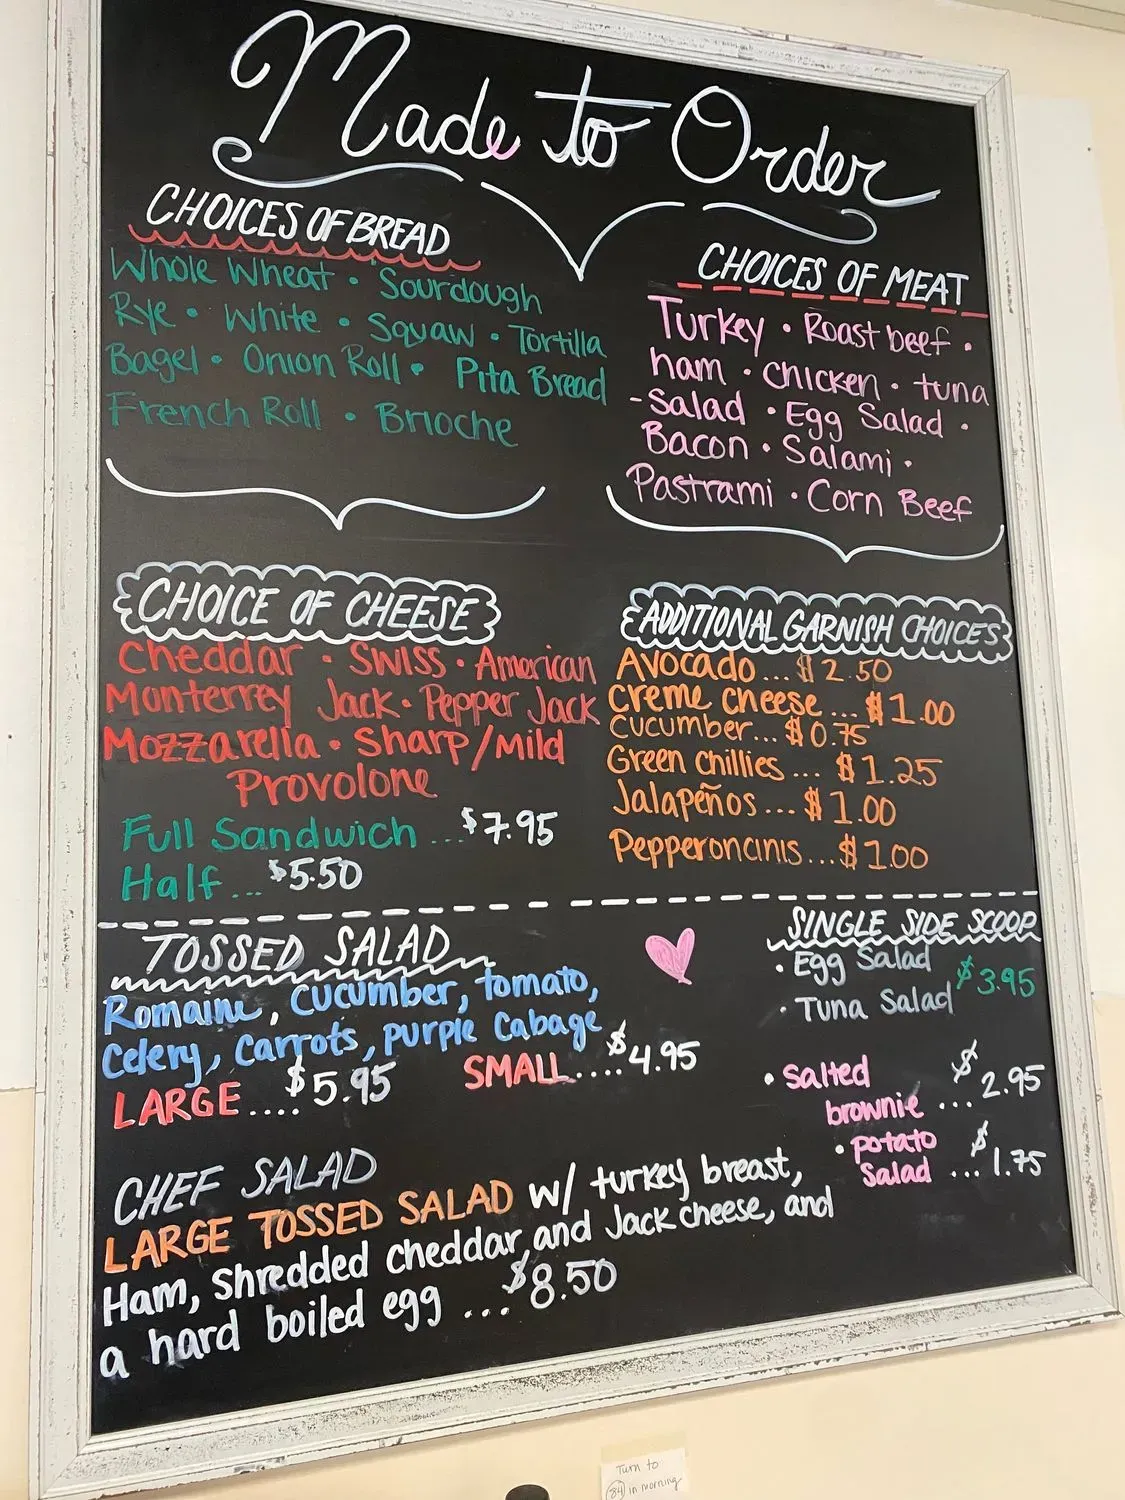 Made to Order
CHOICES OF BREAD
Whole Wheat • Sourdough
Rye • White • Squaw • Tortilla
Bagel • Onion Roll • Pita Bread
French Roll • Brioche
CHOICES OF MEAT
Turkey • Roast beef •
ham • chicken • tuna
-salad • Egg Salad •
Bacon • Salami •
Pastrami • Corn Beef
CHOICE OF CHEESE
Cheddar • Swiss • American
Monterrey Jack • Pepper Jack
Mozzarella • Sharp/Mild
Provolone
Full Sandwich ... $7.95
Half ... $5.50
ADDITIONAL GARNISH CHOICES
Avocado ... $2.50
Creme cheese ... $1.00
Cucumber ... $0.75
Green chillies ... $1.25
Jalapeños ... $1.00
Pepperoncinis ... $1.00
TOSSED SALAD
Romaine, cucumber, tomato,
Celery, Carrots, purple Cabage
LARGE .... $5.95 SMALL .... $4.95
SINGLE SIDE SCOOP
• Egg Salad
• Tuna Salad $3.95
• Salted
brownie ... $2.95
• potato
Salad ... $1.75
CHEF SALAD
LARGE TOSSED SALAD w/ turkey breast,
Ham, shredded cheddar, and Jack cheese, and
a hard boiled egg ... $8.50
Turn to
84 in morning